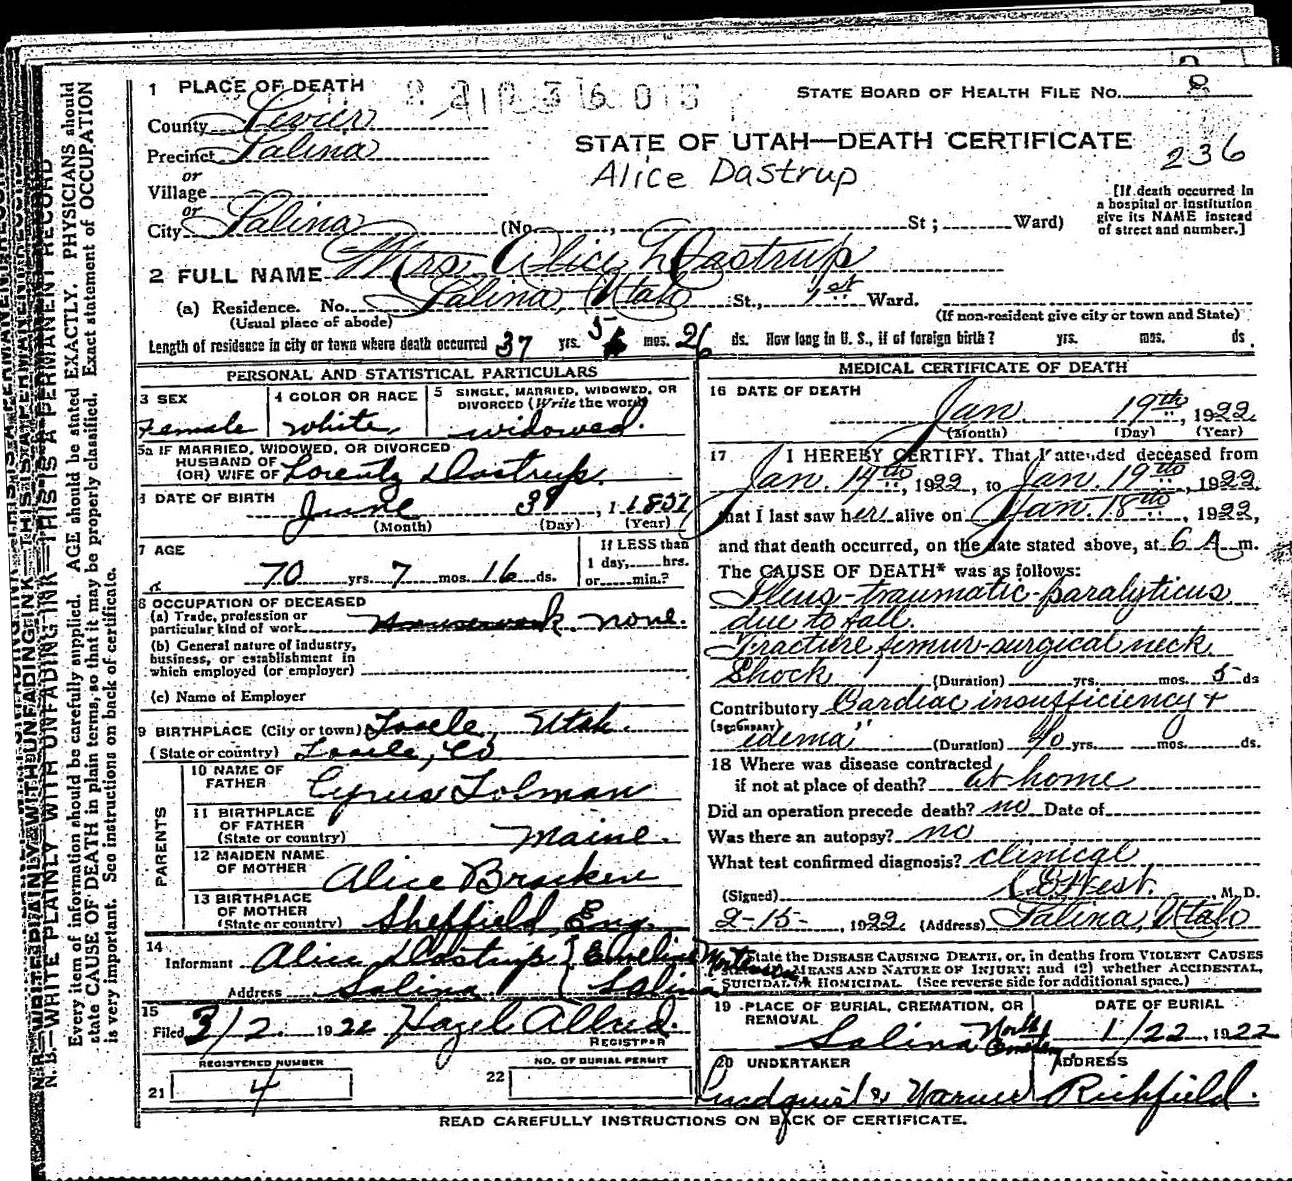 1 PLACE OF DEATH
STATE BOARD OF HEALTH FILE NO. 8
County Sevier
STATE OF UTAH—DEATH CERTIFICATE
236
Precinct Salina
Alice Dastrup
or
Village
or
City Salina (No. , St ; Ward)
[If death occurred in
a hospital or institution
give its NAME instead
of street and number.]
2 FULL NAME Mrs. Alice T Dastrup
(a) Residence. No. Salina, Utah St., 1st Ward.
(Usual place of abode)
(If non-resident give city or town and State)
Length of residence in city or town where death occurred 37 yrs. 5 mos. 26 ds. How long in U. S., if of foreign birth? yrs. mos. ds.
PERSONAL AND STATISTICAL PARTICULARS
3 SEX
Female
4 COLOR OR RACE
White
5 SINGLE, MARRIED, WIDOWED, OR
DIVORCED (Write the word)
widowed.
5a IF MARRIED, WIDOWED, OR DIVORCED
HUSBAND OF
(OR) WIFE OF Lorentz Dastrup.
6 DATE OF BIRTH
June 3 , 1851
(Month) (Day) (Year)
7 AGE
70 yrs. 7 mos. 16 ds.
If LESS than
1 day, hrs.
or min.?
8 OCCUPATION OF DECEASED
(a) Trade, profession or
particular kind of work Housework none.
(b) General nature of industry,
business, or establishment in
which employed (or employer)
(c) Name of Employer
9 BIRTHPLACE (City or town) Tooele, Utah.
(State or country) Tooele, Co
PARENTS
10 NAME OF
FATHER Cyrus Tolman
11 BIRTHPLACE
OF FATHER
(State or country) Maine.
12 MAIDEN NAME
OF MOTHER Alice Bracken
13 BIRTHPLACE
OF MOTHER
(State or country) Sheffield, Eng.
14
Informant Alice Dastrup Emeline
Address Salina Salina
15
Filed 3/2. 1922 Hazel Allred.
REGISTRAR
REGISTERED NUMBER
21 4
NO. OF BURIAL PERMIT
22
MEDICAL CERTIFICATE OF DEATH
16 DATE OF DEATH
Jan. 19th, 1922
(Month) (Day) (Year)
17 I HEREBY CERTIFY. That I attended deceased from
Jan. 14th, 1922, to Jan. 19th, 1922
that I last saw her alive on Jan. 18th, 1922,
and that death occurred, on the date stated above, at 6 A m.
The CAUSE OF DEATH* was as follows:
Ileus-traumatic-paralyticus
due to fall.
Fracture femur-surgical neck
Shock (Duration) yrs. mos. 5 ds
Contributory Cardiac insufficiency +
(SECONDARY)
edema (Duration) yrs. mos. ds.
18 Where was disease contracted
if not at place of death? at home
Did an operation precede death? no Date of
Was there an autopsy? no
What test confirmed diagnosis? clinical
(Signed) West. , M. D.
2-15-, 1922 (Address) Salina, Utah
State the DISEASE CAUSING DEATH, or, in deaths from VIOLENT CAUSES
MEANS AND NATURE OF INJURY; and (2) whether ACCIDENTAL,
SUICIDAL OR HOMICIDAL (See reverse side for additional space.)
19 PLACE OF BURIAL, CREMATION, OR
REMOVAL
Salina North
Cemetery
DATE OF BURIAL
1/22, 1922
20 UNDERTAKER
Lundquist & Warner
ADDRESS
Richfield.
READ CAREFULLY INSTRUCTIONS ON BACK OF CERTIFICATE.
N. B.—WRITE PLAINLY WITH UNFADING INK—THIS IS A PERMANENT RECORD
Every item of information should be carefully supplied. AGE should be stated EXACTLY. PHYSICIANS should
state CAUSE OF DEATH in plain terms, so that it may be properly classified. Exact statement of OCCUPATION
is very important. See instructions on back of certificate.